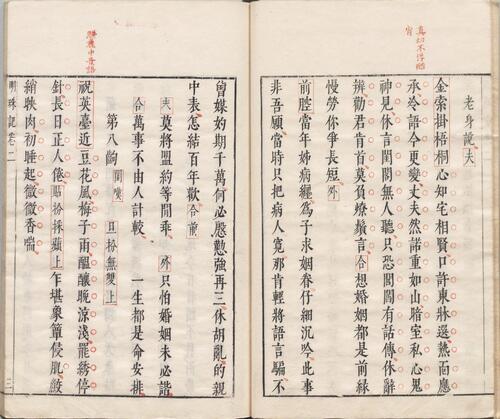 老身說夫
金索掛梧桐心知宅相賢口許東牀選熱面應
承冷語令更變丈夫然諾重如山暗室私心鬼
神見休言閨閫無人聽只恐閨閫有話傳休辭
辨勸君肯首莫負燎鬚言合想婚姻都是前緣
慢勞你爭長短外
前腔當年姊病纏爲子求姻眷仔細沉吟此事
非吾願當時只把病人寬那肯輕將語言騙不
曾媒妁期千萬何必慇懃強再三休胡亂的親
中表怎結百年歡合前
夫莫將盟約等閒乖 外只怕婚姻未必諧
合萬事不由人計較 一生都是命安排
第八齣 閨嘆 旦扮無雙上
祝英臺近豆花風梅子雨醞釀晚涼淺罷綉停
針長日正人倦貼扮採蘋上乍堪象簟侵肌鮫
綃映肉初睡起微微香喘
明珠記卷二